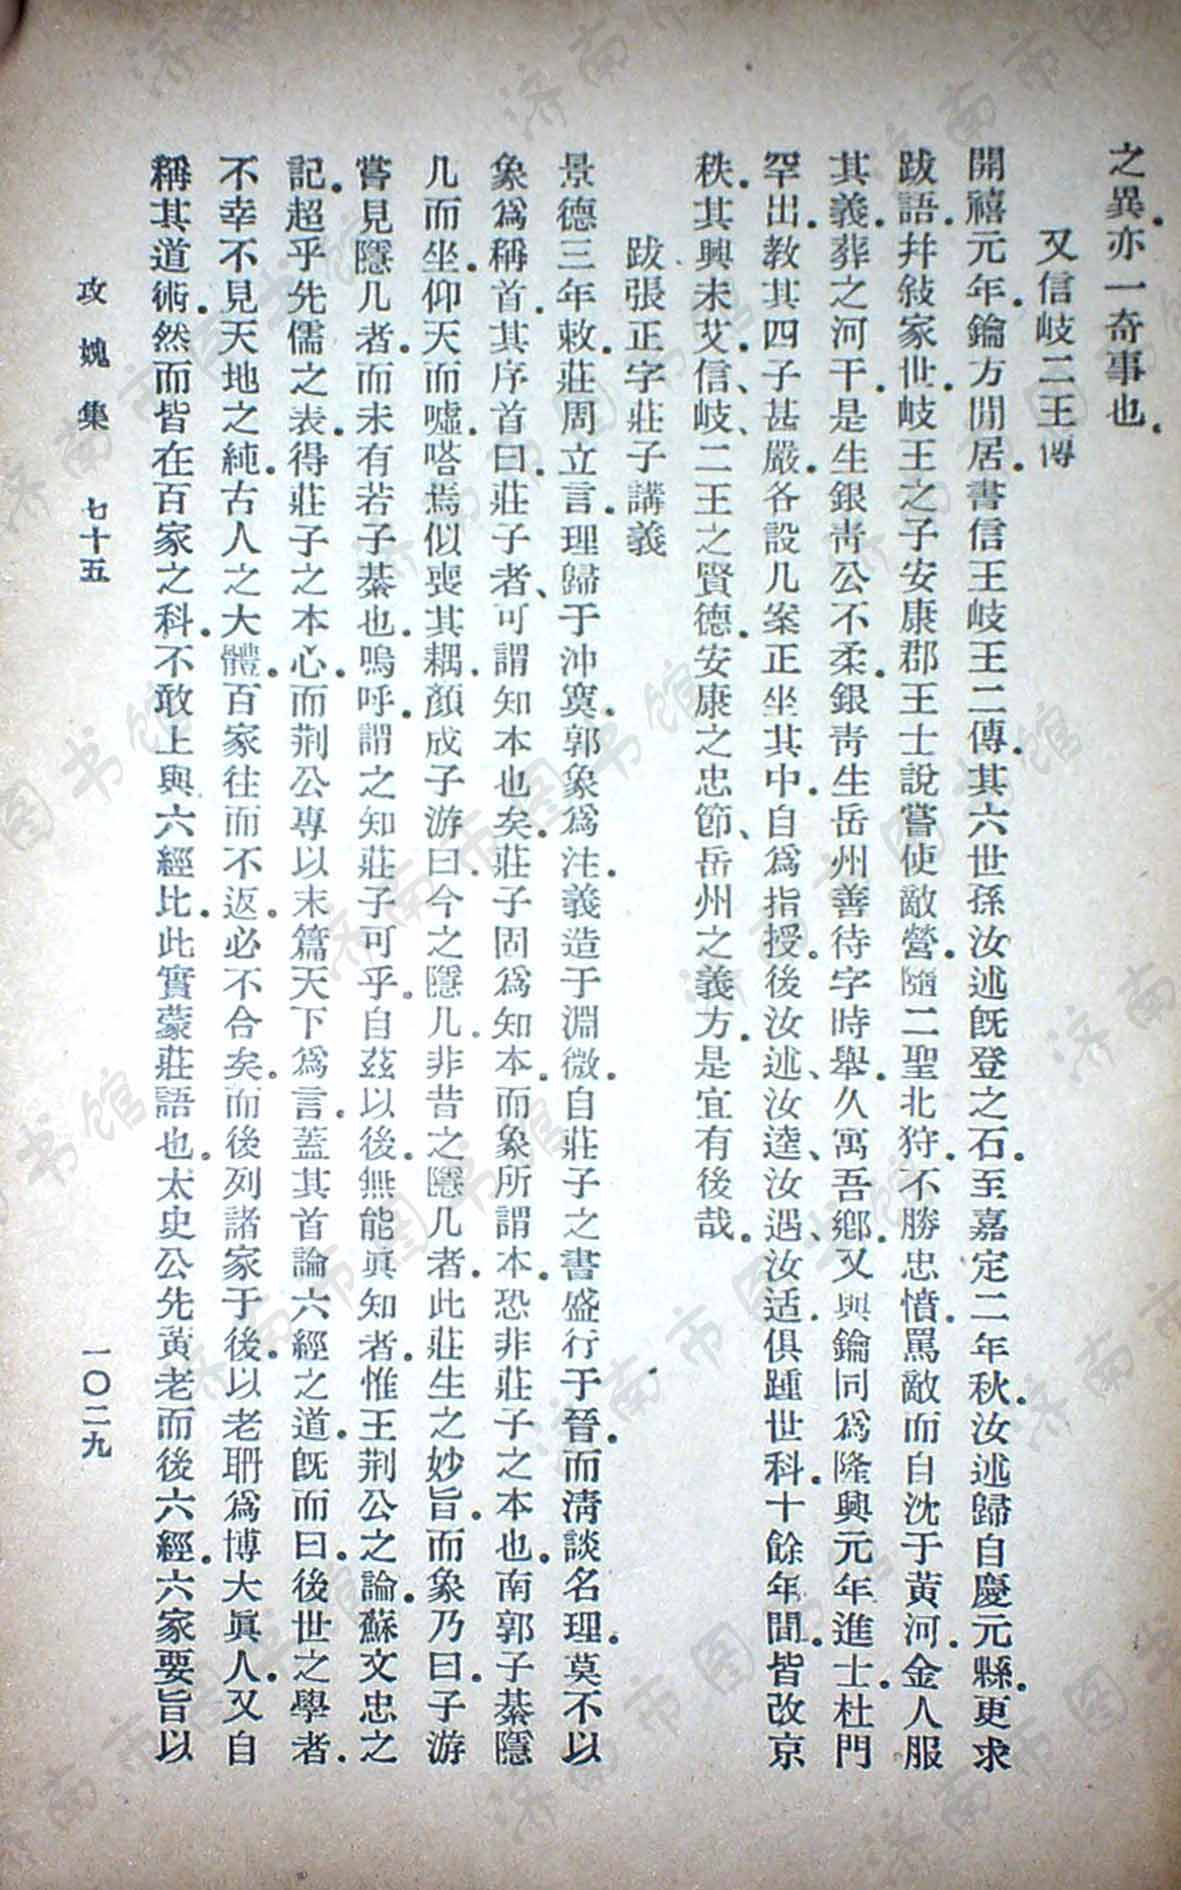 之異。亦一奇事也。
又信岐二王傳
開禧元年。鑰方閒居。書信王岐王二傳。其六世孫汝述旣登之石。至嘉定二年秋。汝述歸自慶元縣。更求
跋語。幷敍家世。岐王之子安康郡王士說嘗使敵營。隨二聖北狩。不勝忠憤。罵敵而自沈于黃河。金人服
其義。葬之河干。是生銀靑公不柔。銀靑生岳州善待。字時舉。久寓吾鄕。又與鑰同爲隆興元年進士。杜門
罕出。教其四子甚嚴。各設几案。正坐其中。自爲指授。後汝述、汝逵、汝遇、汝适俱踵世科。十餘年間。皆改京
秩。其興未艾。信、岐、二王之賢德。安康之忠節、岳州之義方。是宜有後哉。
跋張正字莊子講義
景德三年敕。莊周立言。理歸于沖寞。郭象爲注。義造于淵微。自莊子之書盛行于晉。而淸談名理。莫不以
象爲稱首。其序首曰。莊子者、可謂知本也矣。莊子固爲知本。而象所謂本。恐非莊子之本也。南郭子綦隱
几而坐。仰天而噓。嗒焉似喪其耦。顏成子游曰。今之隱几。非昔之隱几者。此莊生之妙旨。而象乃曰。子游
嘗見隱几者。而未有若子綦也。嗚呼。謂之知莊子可乎。自茲以後。無能眞知者。惟王荆公之論。蘇文忠之
記。超乎先儒之表。得莊子之本心。而荆公專以末篇天下爲言。蓋其首論六經之道。旣而曰。後世之學者。
不幸不見天地之純。古人之大體。百家往而不返。必不合矣。而後列諸家于後。以老聃爲博大眞人。又自
稱其道術。然而皆在百家之科。不敢上與六經比。此實蒙莊語也。太史公先黃老而後六經。六家要旨以
攻媿集　七十五　一〇二九